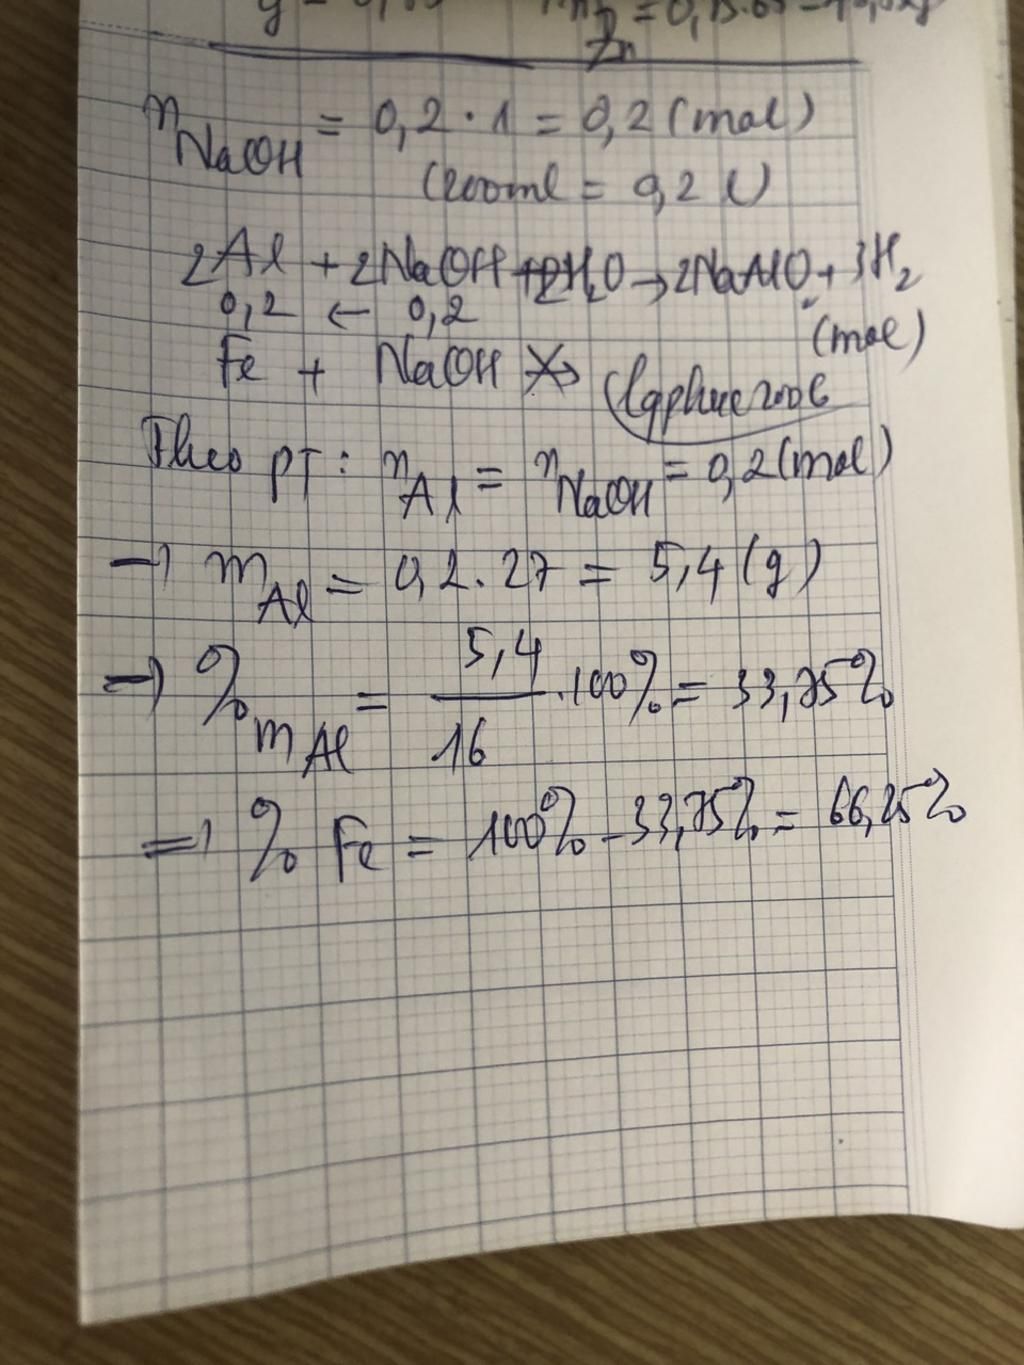 nNaOH = 0,2 . 1 = 0,2 (mol)
(200ml = 0,2 l)
2Al + 2NaOH + 2H2O → 2NaAlO2 + 3H2
0,2 ← 0,2 (mol)
Fe + NaOH
Theo PT: nAl = nNaOH = 0,2 (mol)
→ mAl = 0,2 . 27 = 5,4 (g)
→ %mAl = 5,4/16 . 100% = 33,75%
⇒ % Fe = 100% - 33,75% = 66,25%